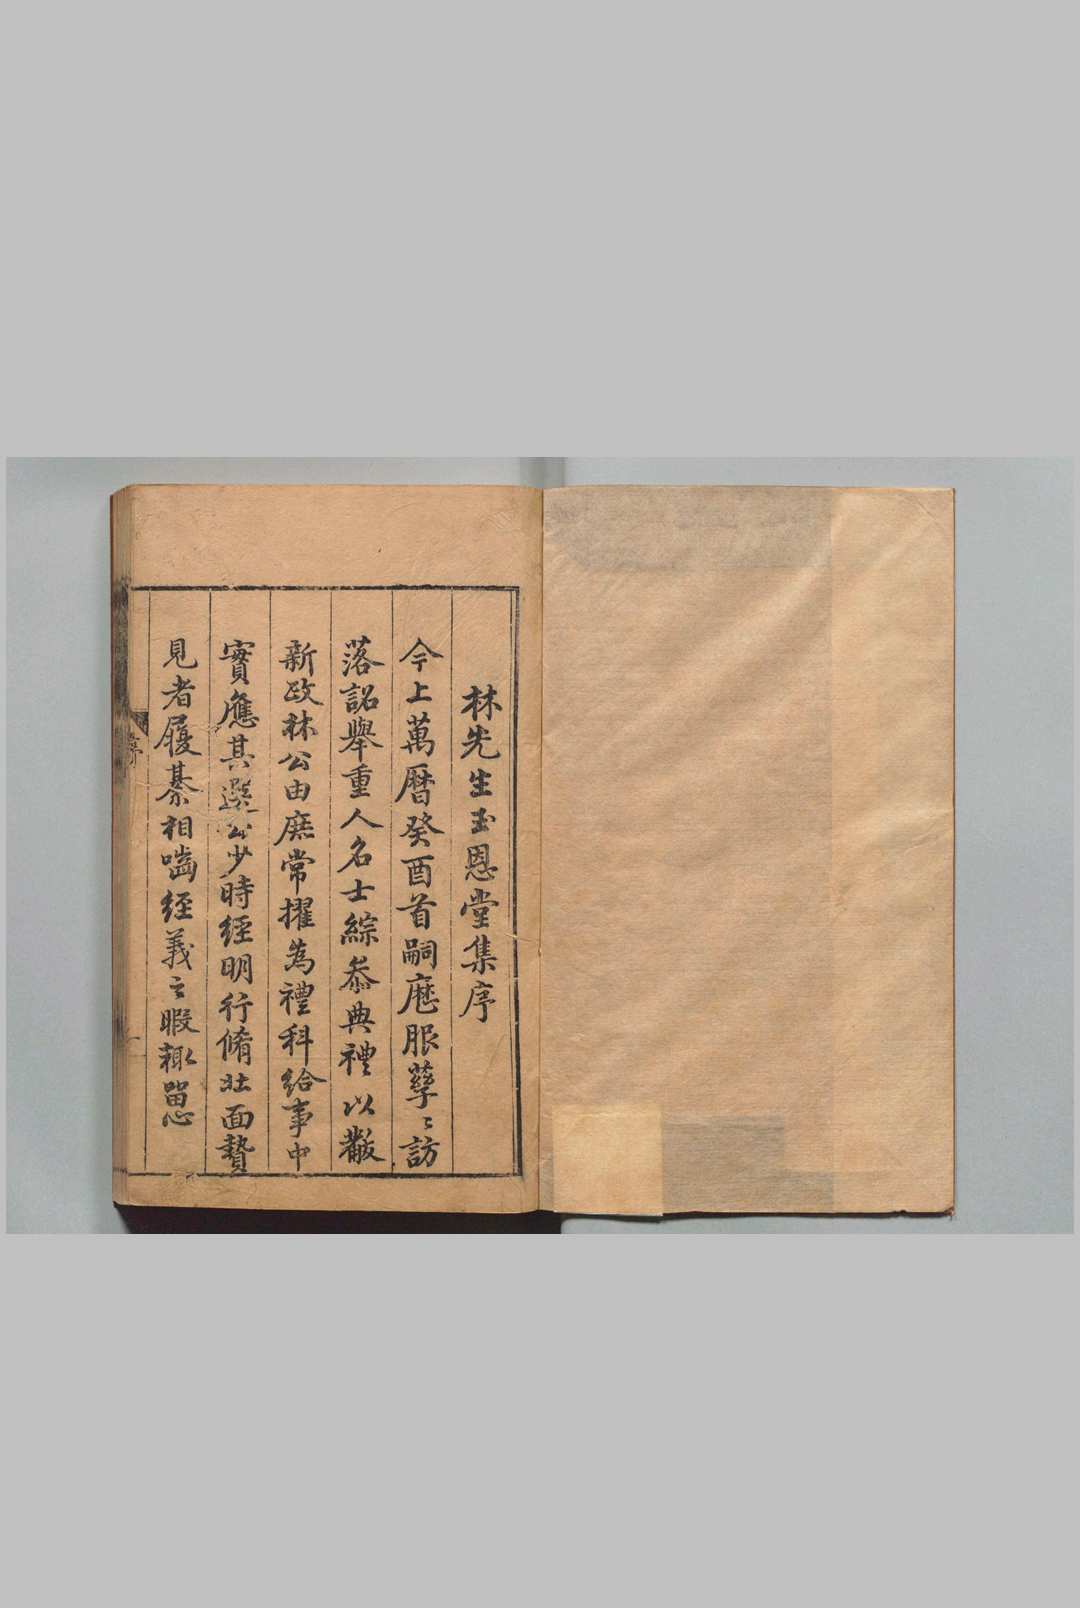 林先生玉恩堂集序
今上萬曆癸酉首嗣歷服孳〻訪
落詔舉重人名士綜叅典禮以黻
新政林公由庶常擢為禮科給事中
實應其選公少時經明行脩北面贄
見者履綦相嚙經義之暇輙留思
序